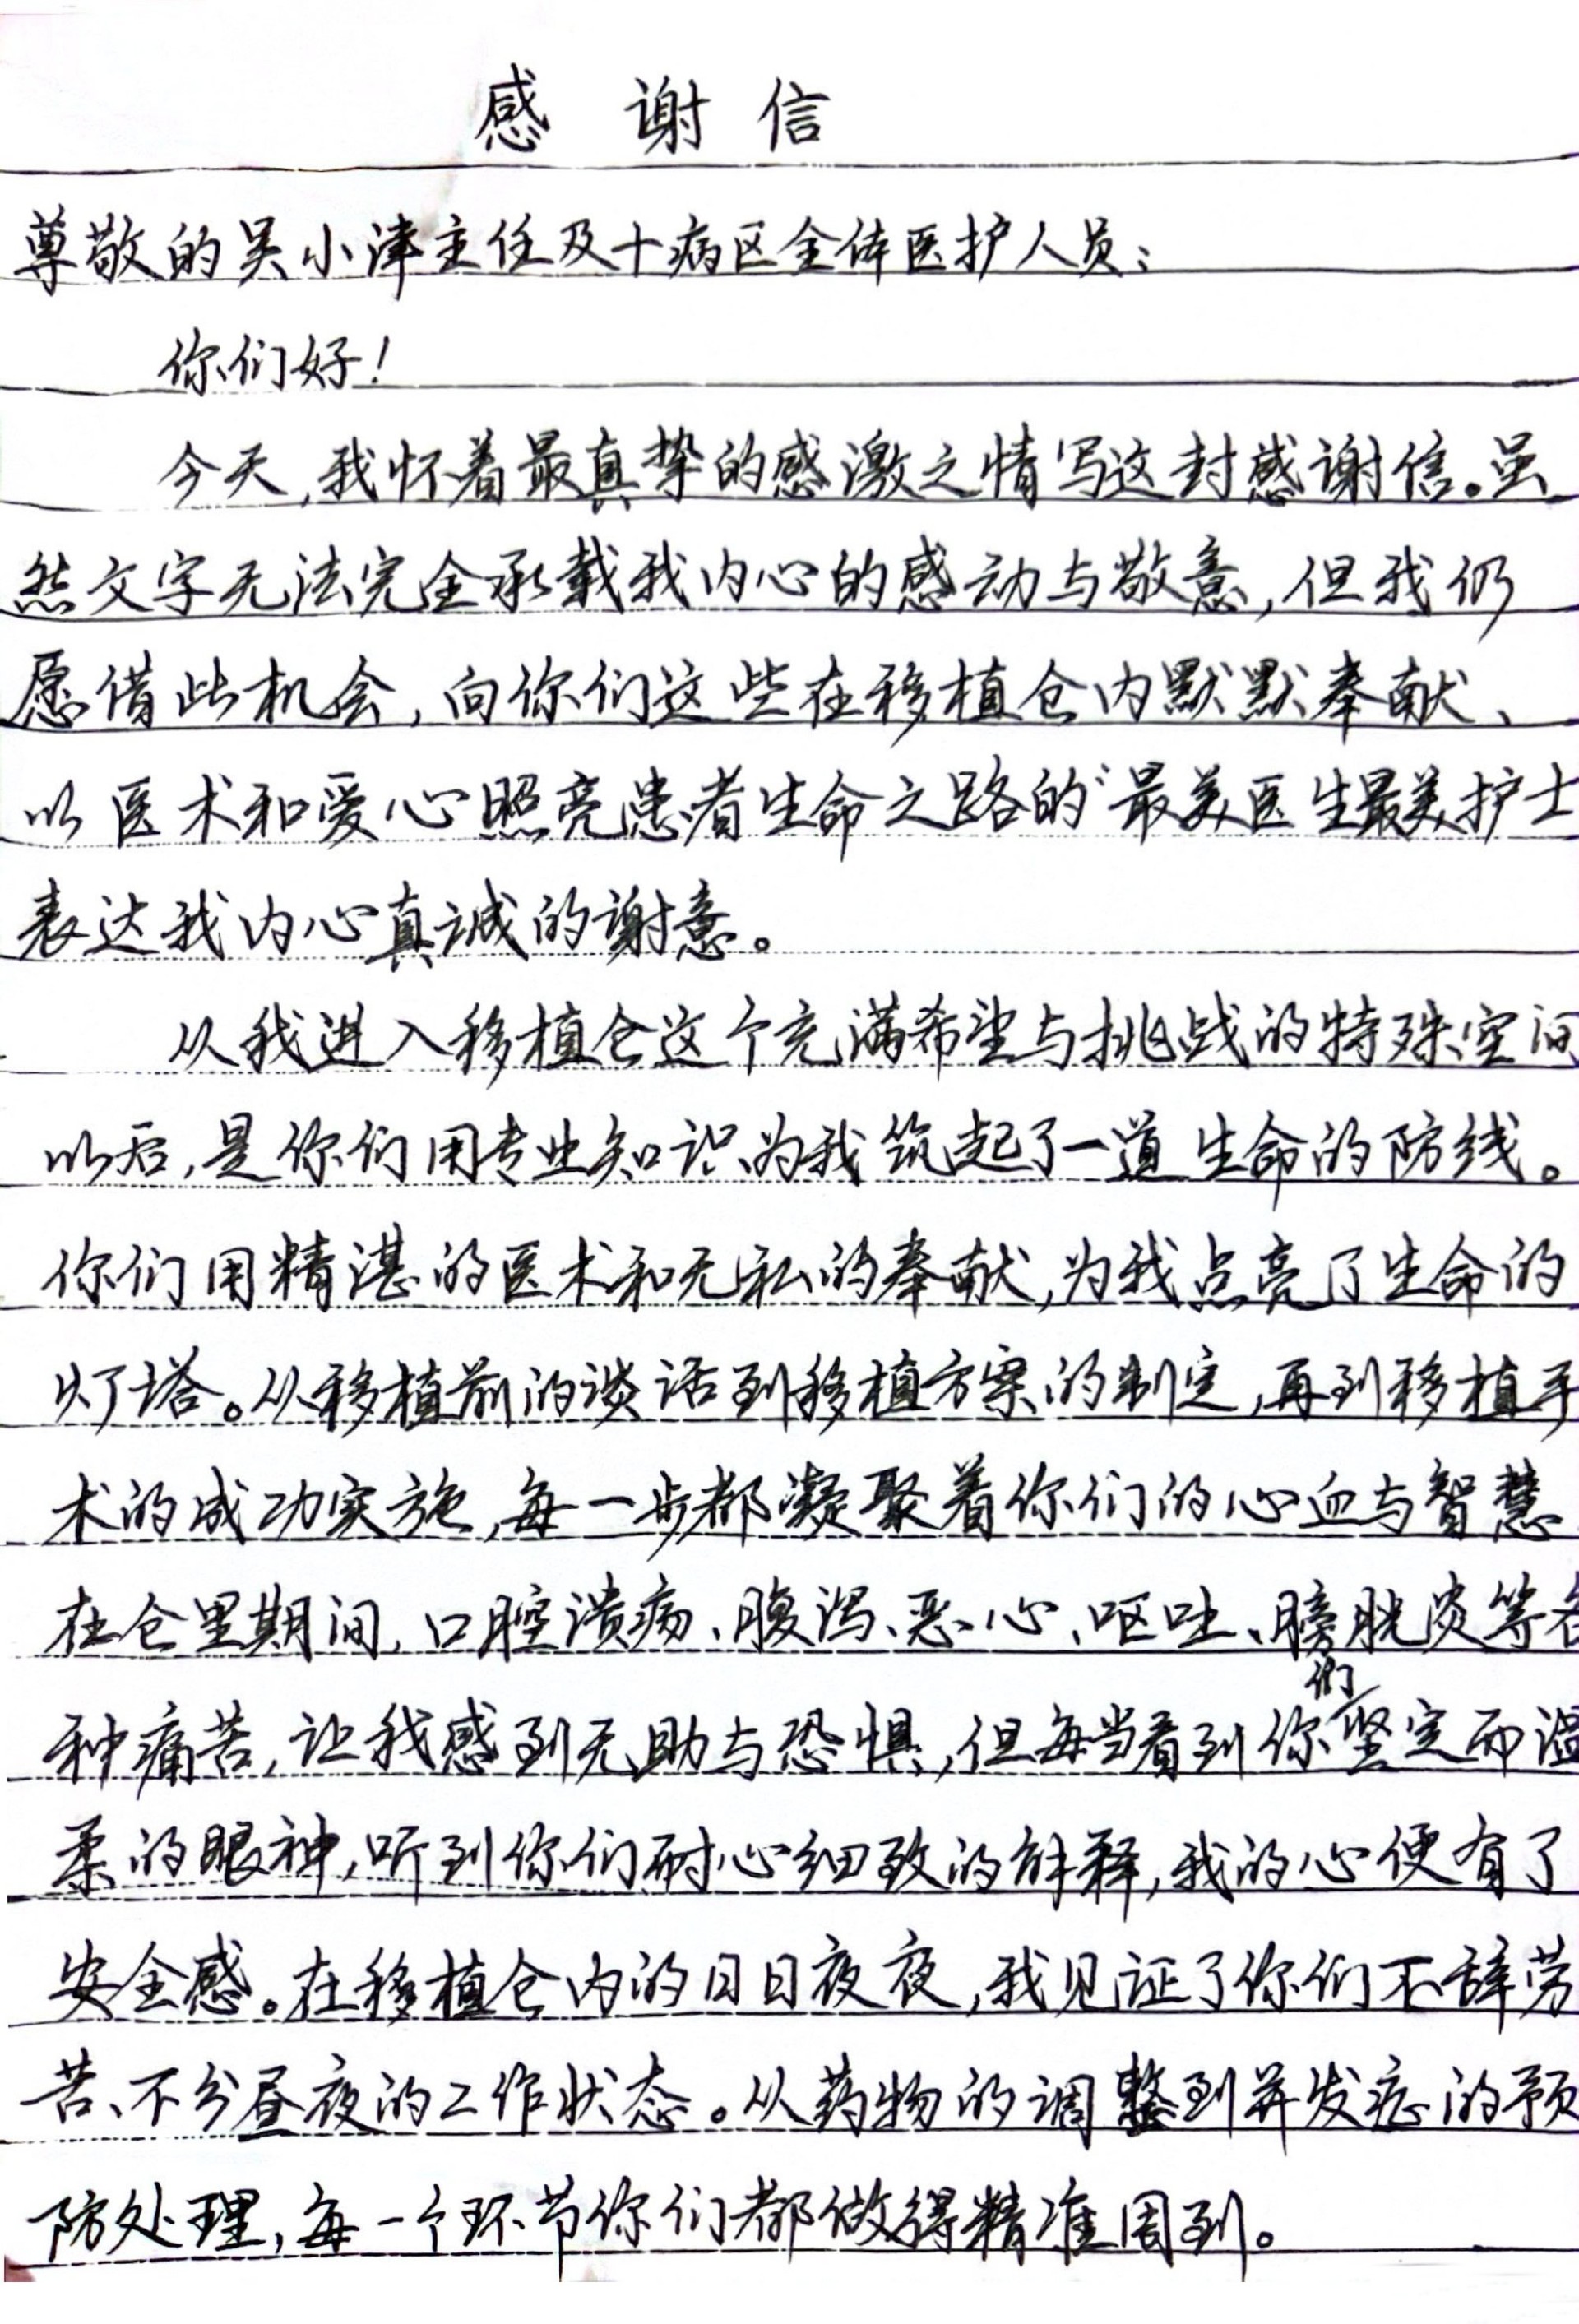 感谢信
尊敬的吴小津主任及十病区全体医护人员：
你们好！
今天，我怀着最真挚的感激之情写这封感谢信。虽
然文字无法完全承载我内心的感动与敬意，但我仍
愿借此机会，向你们这些在移植仓内默默奉献、
以医术和爱心照亮患者生命之路的“最美医生最美护士
表达我内心真诚的谢意。
从我进入移植仓这个充满希望与挑战的特殊空间
以后，是你们用专业知识为我筑起了一道生命的防线。
你们用精湛的医术和无私的奉献，为我点亮了生命的
灯塔。从移植前的谈话到移植方案的制定，再到移植手
术的成功实施，每一步都凝聚着你们的心血与智慧
在仓里期间，口腔溃疡、腹泻、恶心、呕吐、膀胱炎等各
种痛苦，让我感到无助与恐惧，但每当看到你们坚定而温
柔的眼神，听到你们耐心细致的解释，我的心便有了
安全感。在移植仓内的日日夜夜，我见证了你们不辞劳
苦、不分昼夜的工作状态。从药物的调整到并发症的预
防处理，每一个环节你们都做得精准周到。